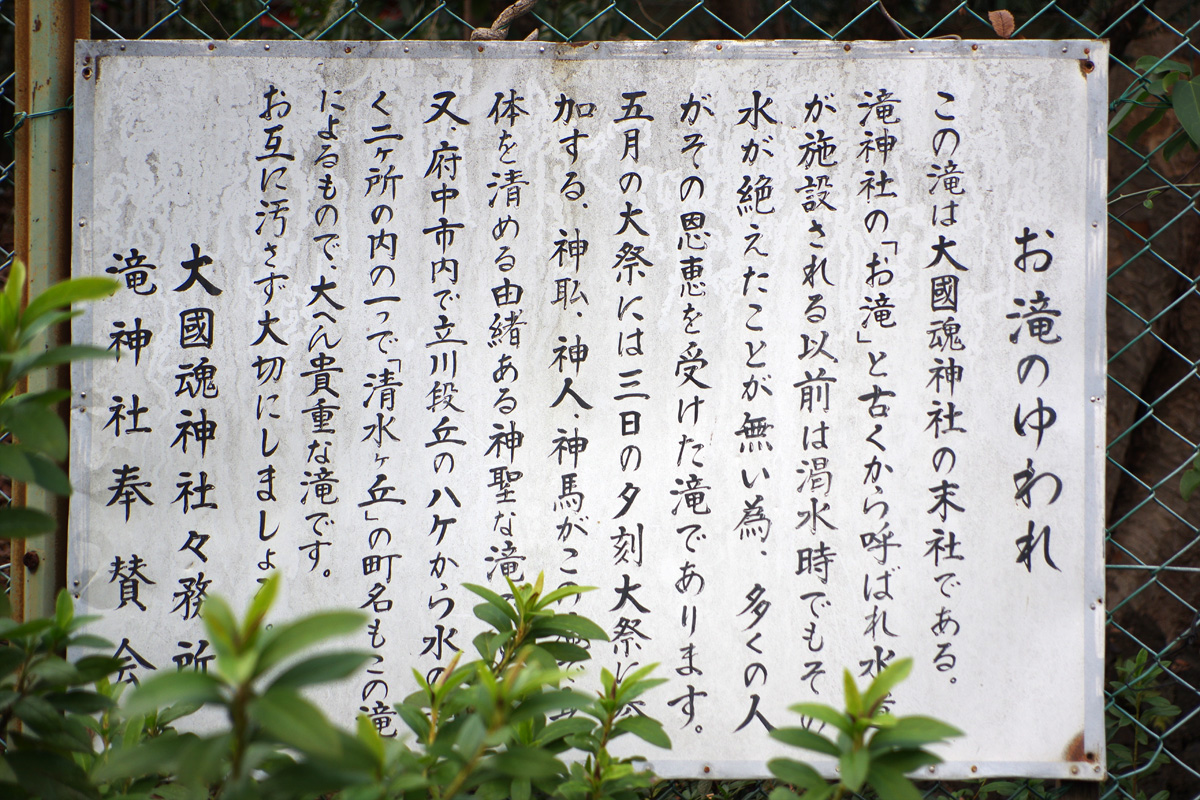 お滝のゆわれ
この滝は大國魂神社の末社である。
滝神社の「お滝」と古くから呼ばれ水
が施設される以前は渇水時でもそ
水が絶えたことが無い為、多くの人
がその恩恵を受けた滝であります。
五月の大祭には三日の夕刻大祭に
加する、神職、神人、神馬がこの
体を清める由緒ある神聖な滝
又、府中市内で立川段丘のハケから水の
く二ヶ所の内の一つで「清水ヶ丘」の町名もこの滝
によるもので、大へん貴重な滝です。
お互に汚さず大切にしましょ
大國魂神社々務所
滝神社奉賛会